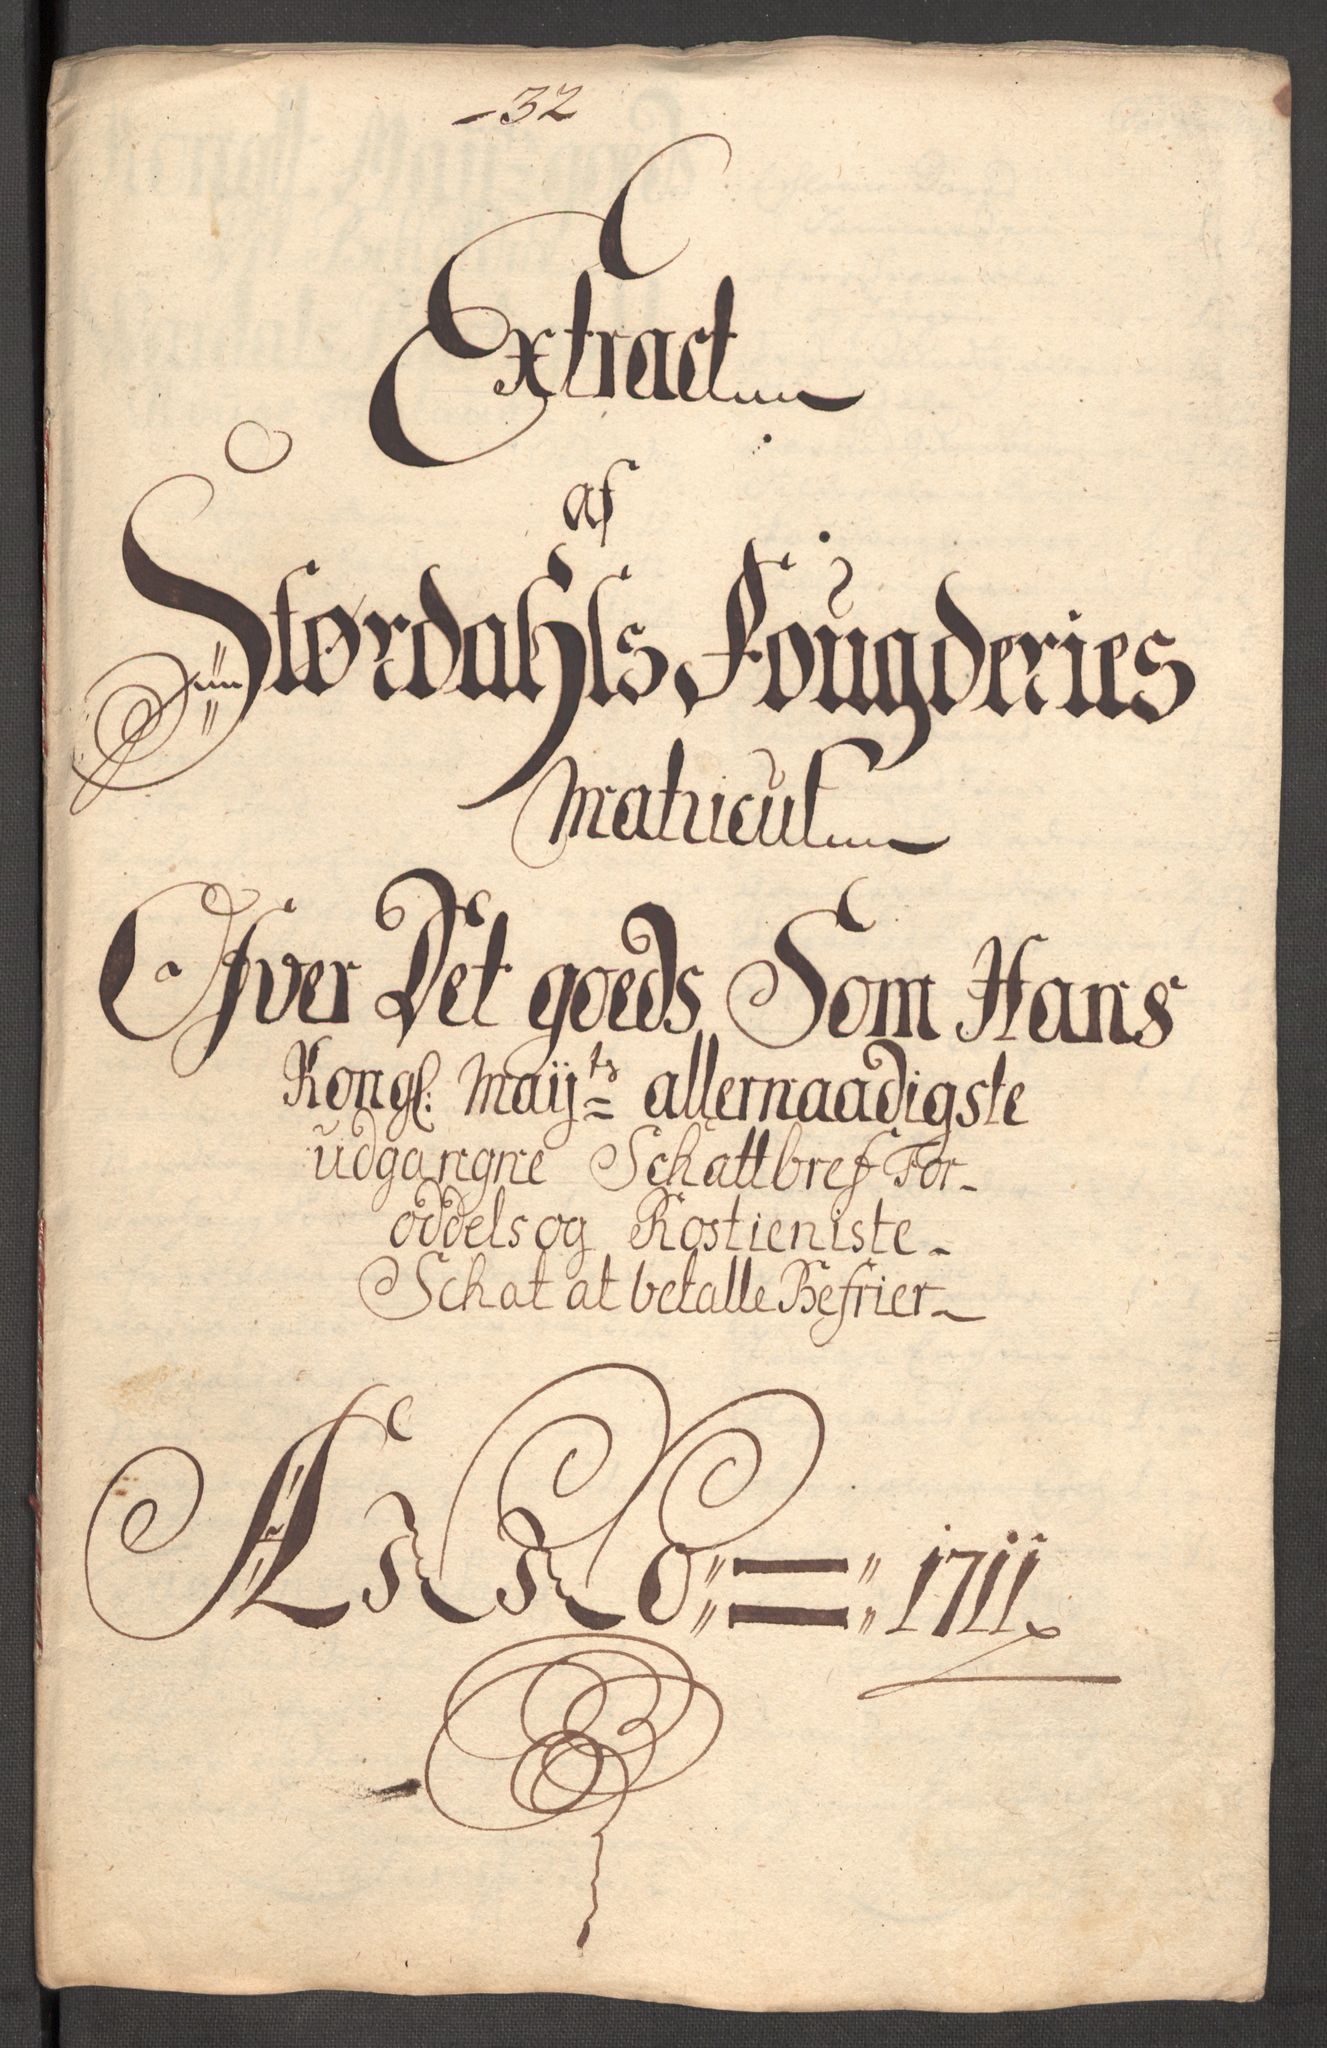 32
Extract
af
Størdahls Fougderies
Matricul
Ofver Det goeds Som Hans
Kongl: Maij:ts allernaadigste
udgangne Schattbref For
oddels og Rostieniste
Schat at betalle Befrier
ANNO = 1711